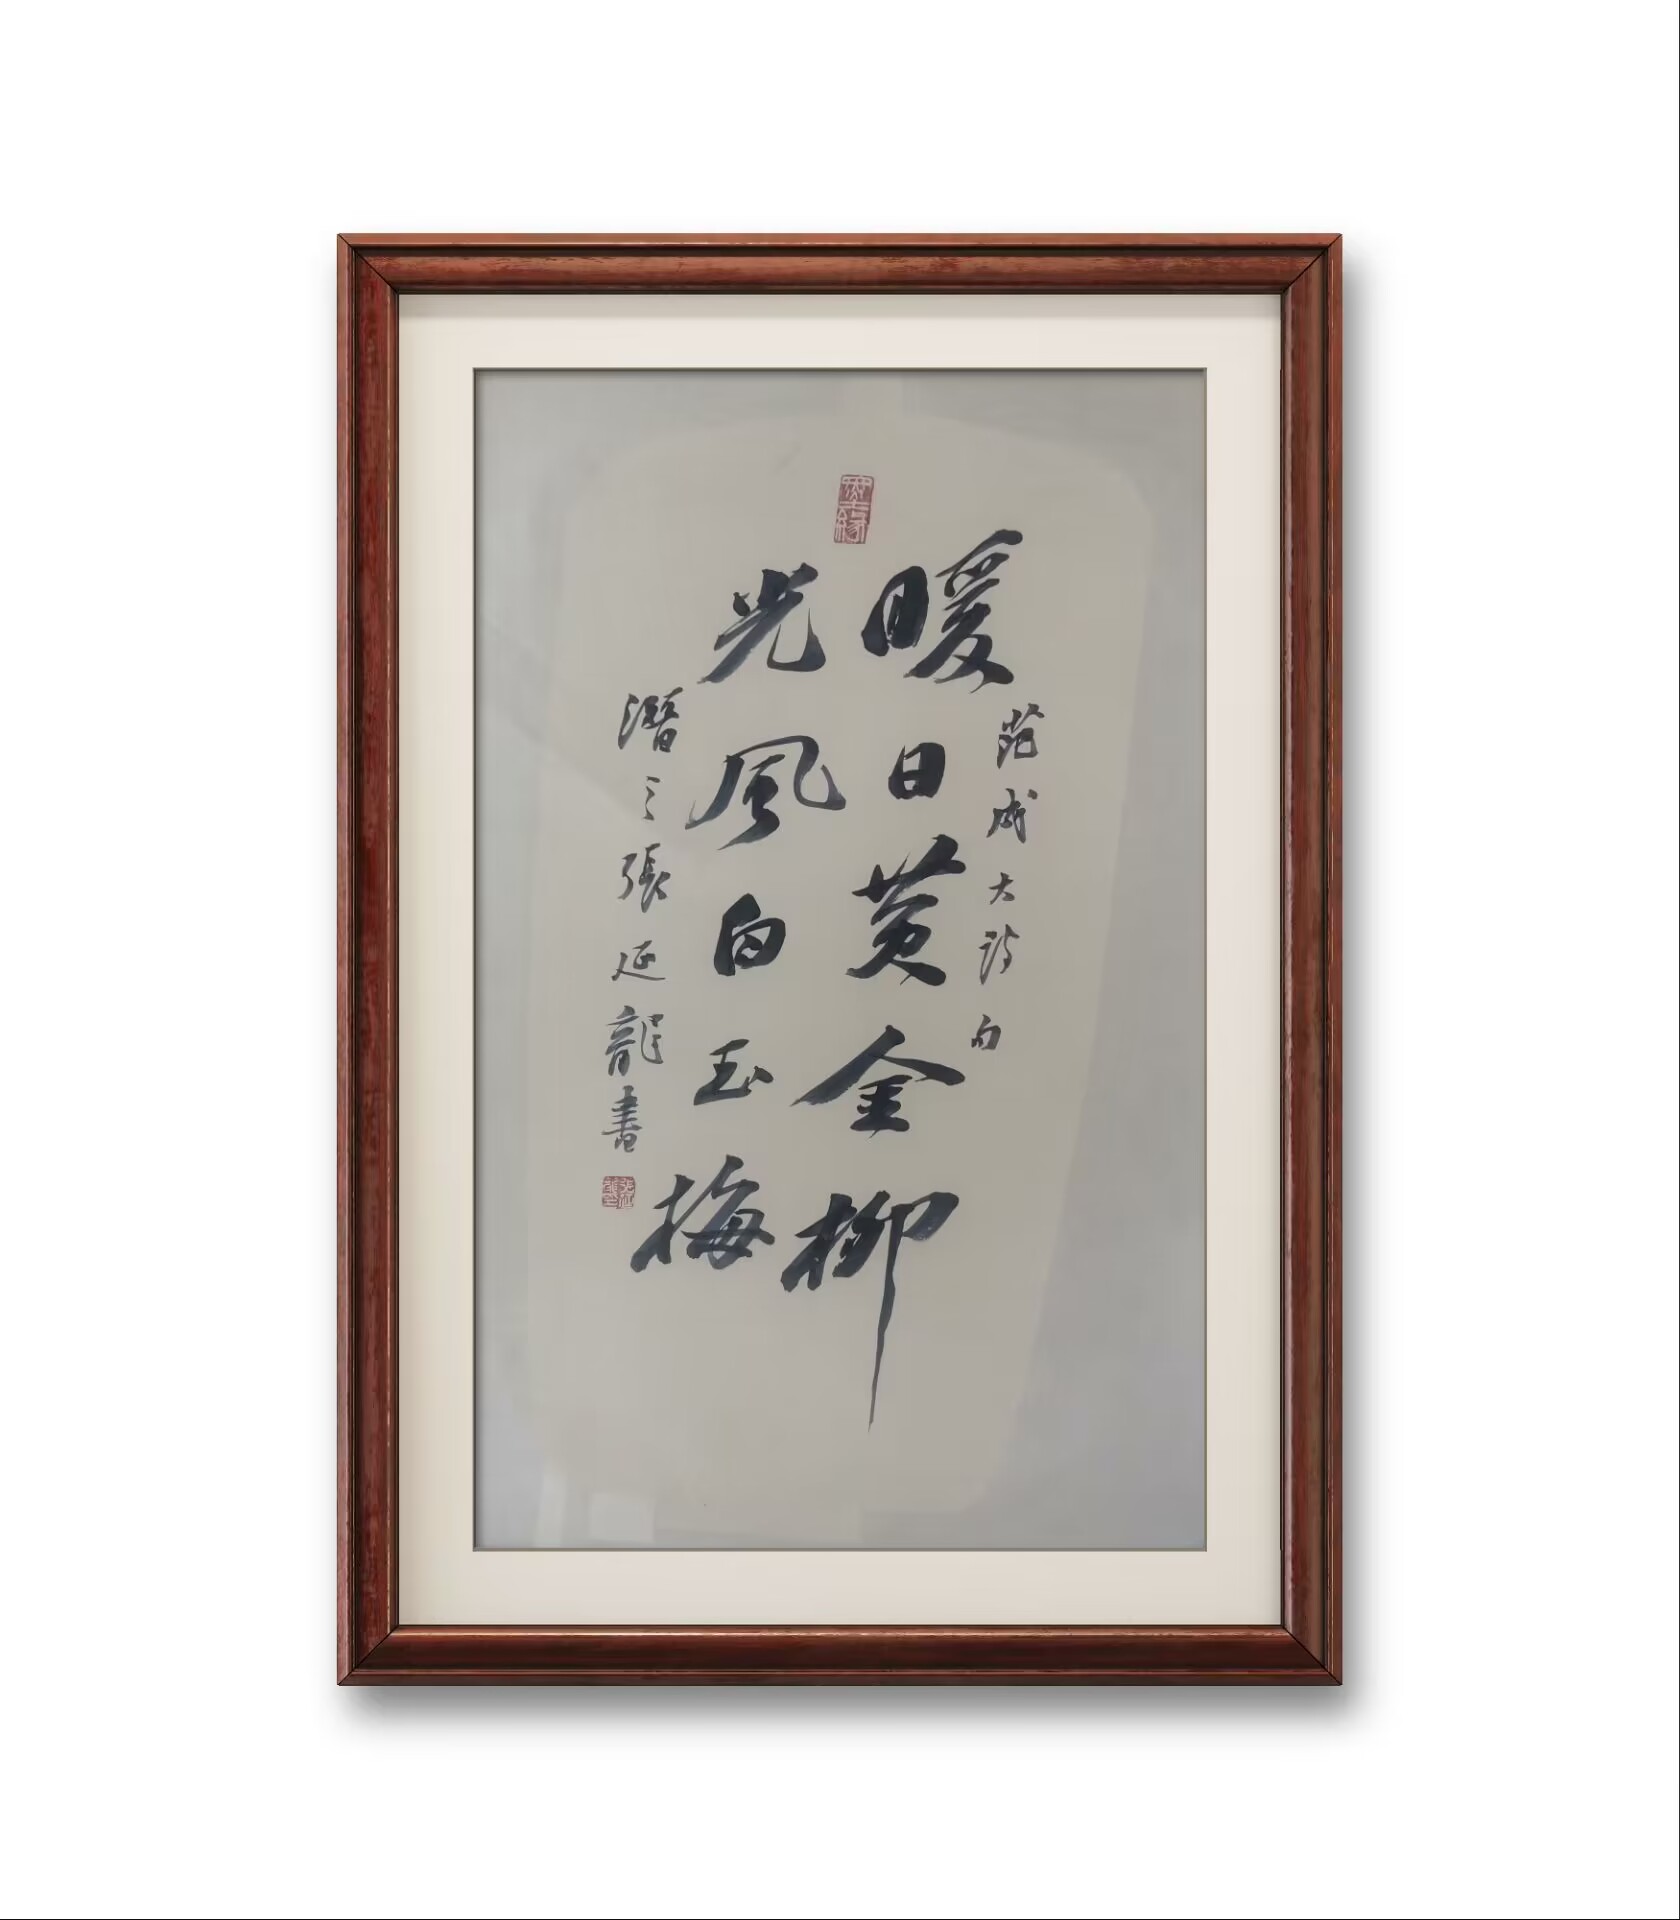 范成大诗句
暖日黄金柳
光風白玉梅
潛之張延龍書